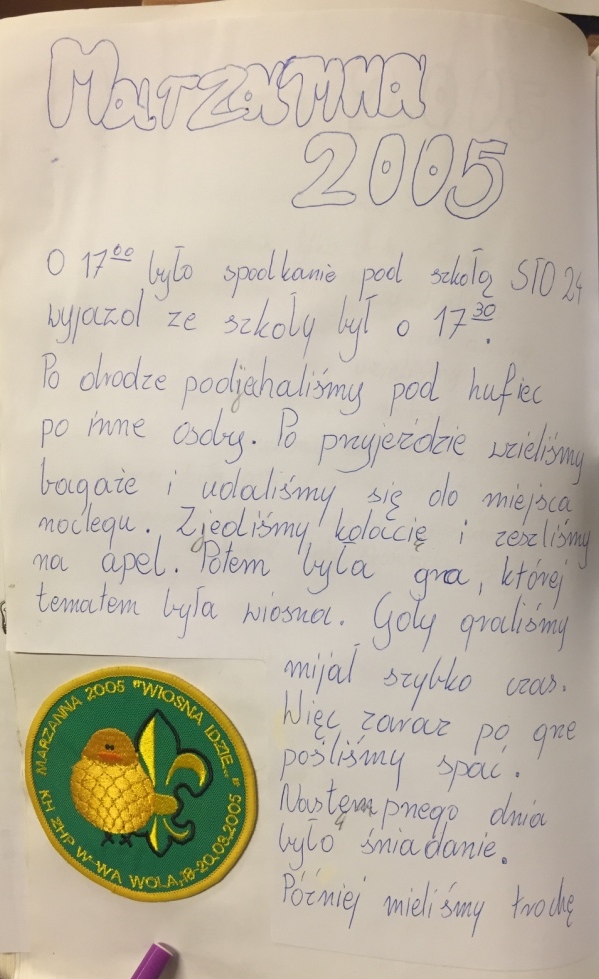 Marzanna
2005
O 17⁰⁰ było spodkanie pod szkołą STO 24
wyjazd ze szkoły był o 17³⁰.
Po drodze podjehaliśmy pod hufiec
po inne osoby. Po przyjeździe wzieliśmy
bagaże i udaliśmy się do miejsca
noclegu. Zjedliśmy kolację i zeszliśmy
na apel. Potem była gra, której
tematem była wiosna. Gdy graliśmy
mijał szybko czas.
Więc zaraz po grze
pośliśmy spać.
Następnego dnia
było śniadanie.
Później mieliśmy trochę
MARZANNA 2005 "WIOSNA IDZIE..."
KH ZHP W-WA WOLA, 18-20.03.2005